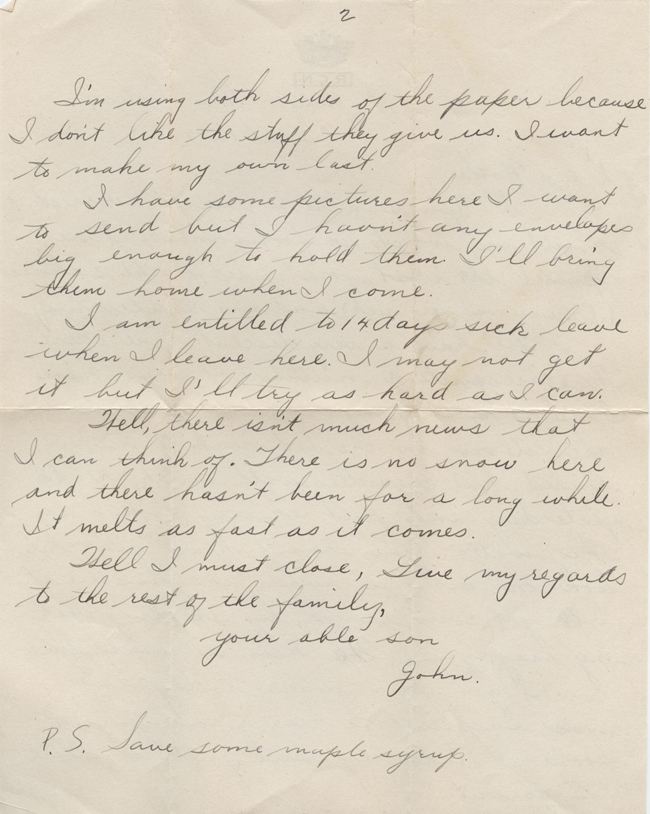 2
I'm using both sides of the paper because
I don't like the stuff they give us. I want
to make my own last.
I have some pictures here I want
to send but I havn't any envelopes
big enough to hold them I'll bring
them home when I come.
I am entitled to 14 days sick leave
when I leave here. I may not get
it but I'll try as hard as I can.
Well, there isn't much news that
I can think of. There is no snow here
and there hasn't been for a long while.
It melts as fast as it comes.
Well I must close, Give my regards
to the rest of the family,
your able son
John.
P.S. Save some maple syrup.